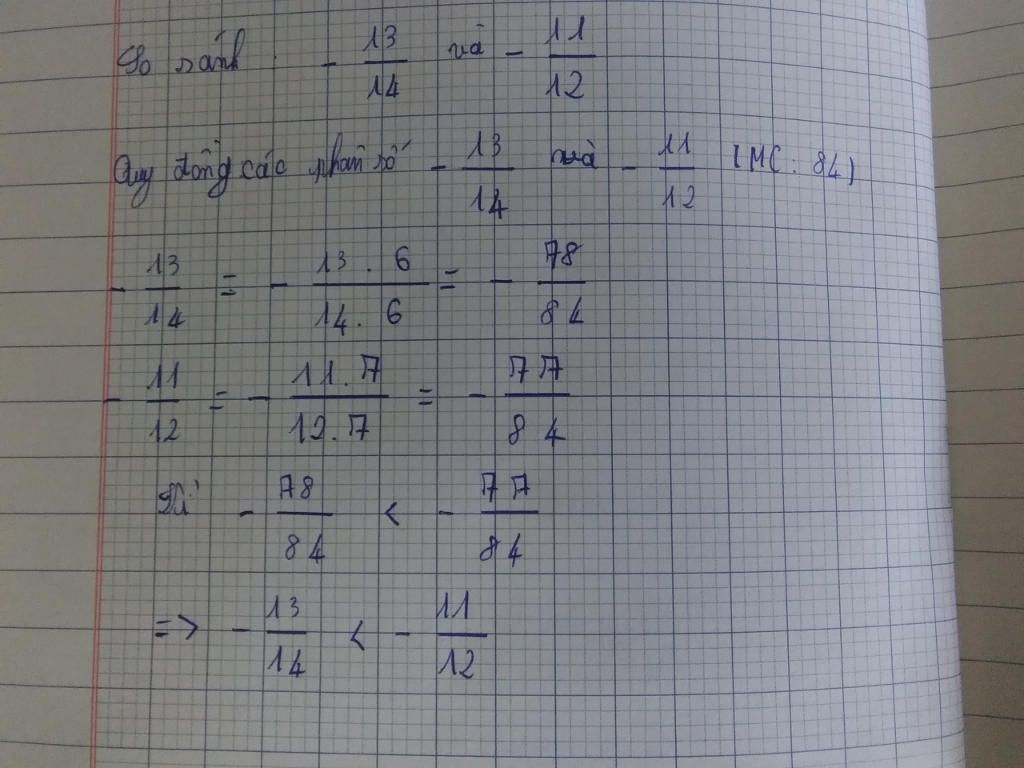 So sánh : - 13/14 và - 11/12
Quy đồng các phân số - 13/14 và - 11/12 (MC : 84)
- 13/14 = - 13 . 6/14 . 6 = - 78/84
- 11/12 = - 11 . 7/12 . 7 = - 77/84
- 78/84 < - 77/84
=> - 13/14 < - 11/12